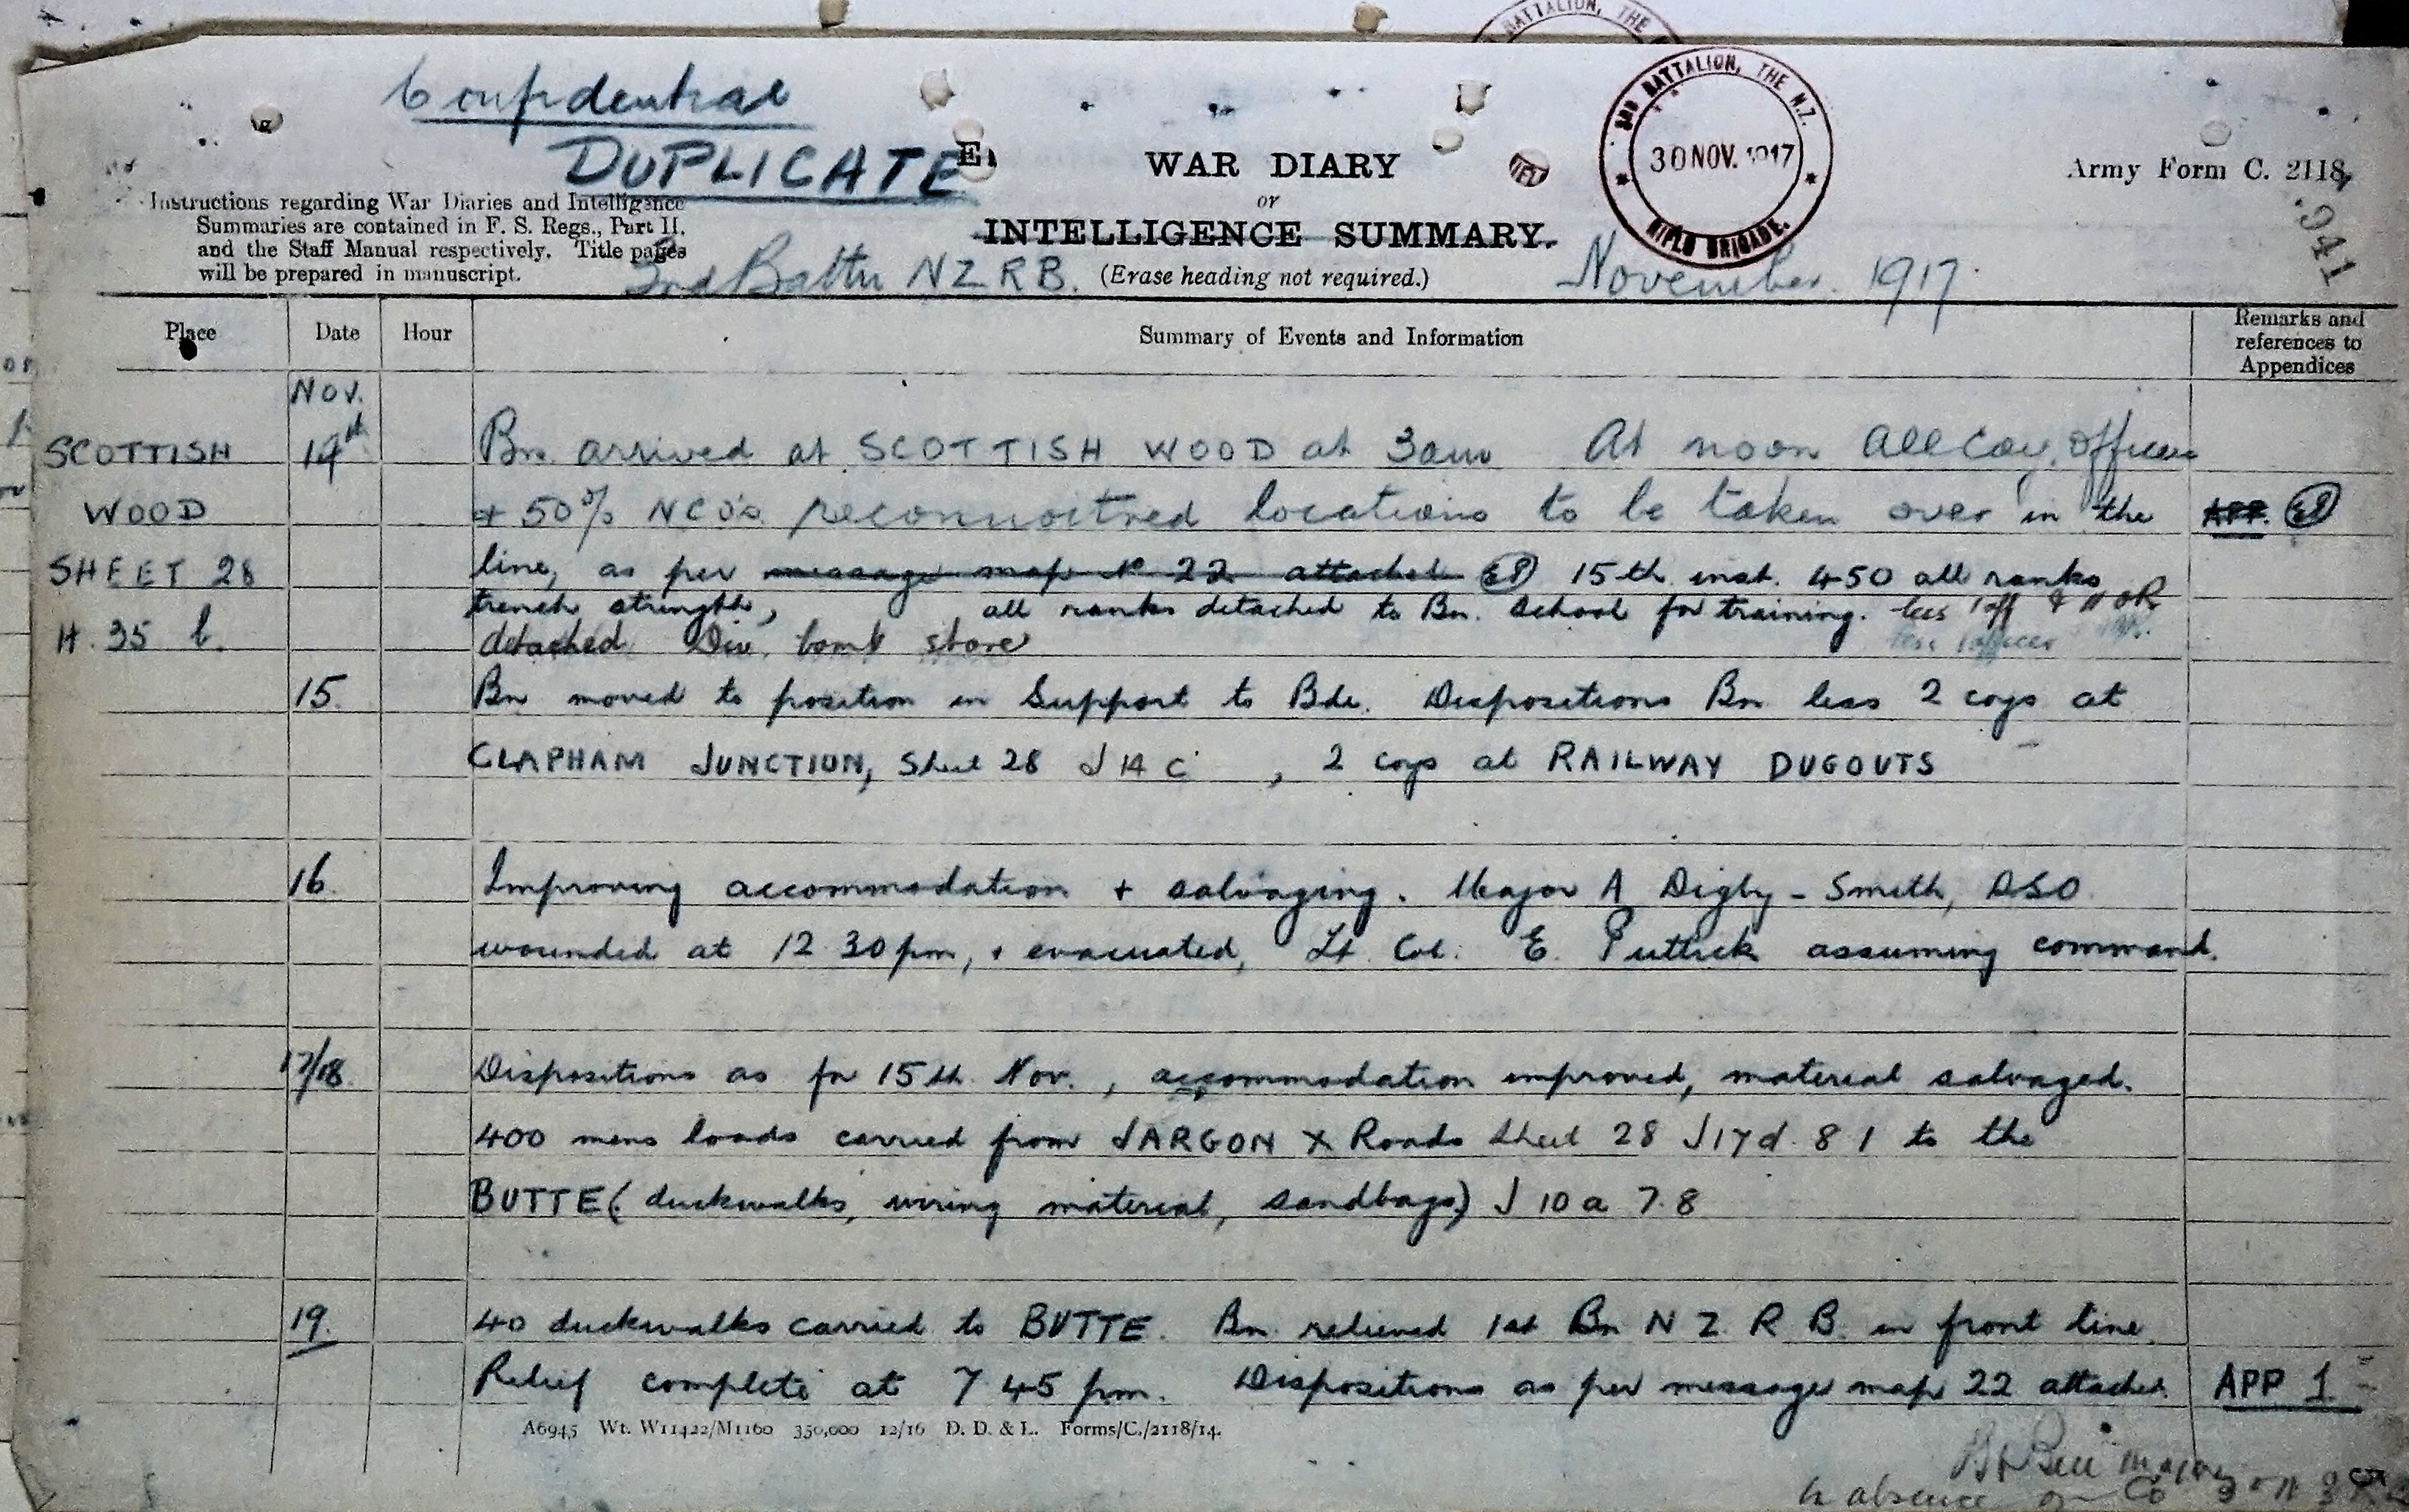 BATTALION, THE
Confidential
DUPLICATE
E.
WAR DIARY
or
INTELLIGENCE SUMMARY.
(Erase heading not required.)
3RD BATTALION, THE N.Z. RIFLE BRIGADE.
30 NOV. 1917
Army Form C. 2118.
Instructions regarding War Diaries and Intelligence
Summaries are contained in F. S. Regs., Part II.
and the Staff Manual respectively. Title pages
will be prepared in manuscript.
3rd Battn NZRB.
November 1917.
Place Date Hour Summary of Events and Information Remarks and references to Appendices
Nov.
SCOTTISH 14th Bn. arrived at SCOTTISH WOOD at 3am At noon all Coy. Officers
WOOD + 50% NCO's reconnoitred locations to be taken over in the APP. EP
SHEET 28 line, as per message map No 22 attached EP 15th inst. 450 all ranks
trench strength, all ranks detached to Bn. School for training. less 1 off & 11 OR
H. 35 b. detached Div. bomb store less 1 officer
15. Bn moved to position in Support to Bde. Dispositions Bn less 2 coys at
CLAPHAM JUNCTION, Sheet 28 J 14 c , 2 coys at RAILWAY DUGOUTS
16. Improving accommodation + salvaging. Major A Digby-Smith, DSO
wounded at 12 30 pm, + evacuated, Lt. Col. E. Puttick assuming command.
17/18. Dispositions as for 15th Nov., accommodation improved, material salvaged.
400 mens loads carried from JARGON X Roads Sheet 28 J17d. 8 1 to the
BUTTE (duckwalks, wiring material, sandbags) J 10 a 7.8
19. 40 duckwalks carried to BUTTE. Bn. relieved 1st Bn N Z R B. in front line.
Relief complete at 7 45 pm. Dispositions as per message map 22 attached. APP 1
A6945 Wt. W11422/M1160 350,000 12/16 D. D. & L. Forms/C./2118/14.
Major
in absence of CO